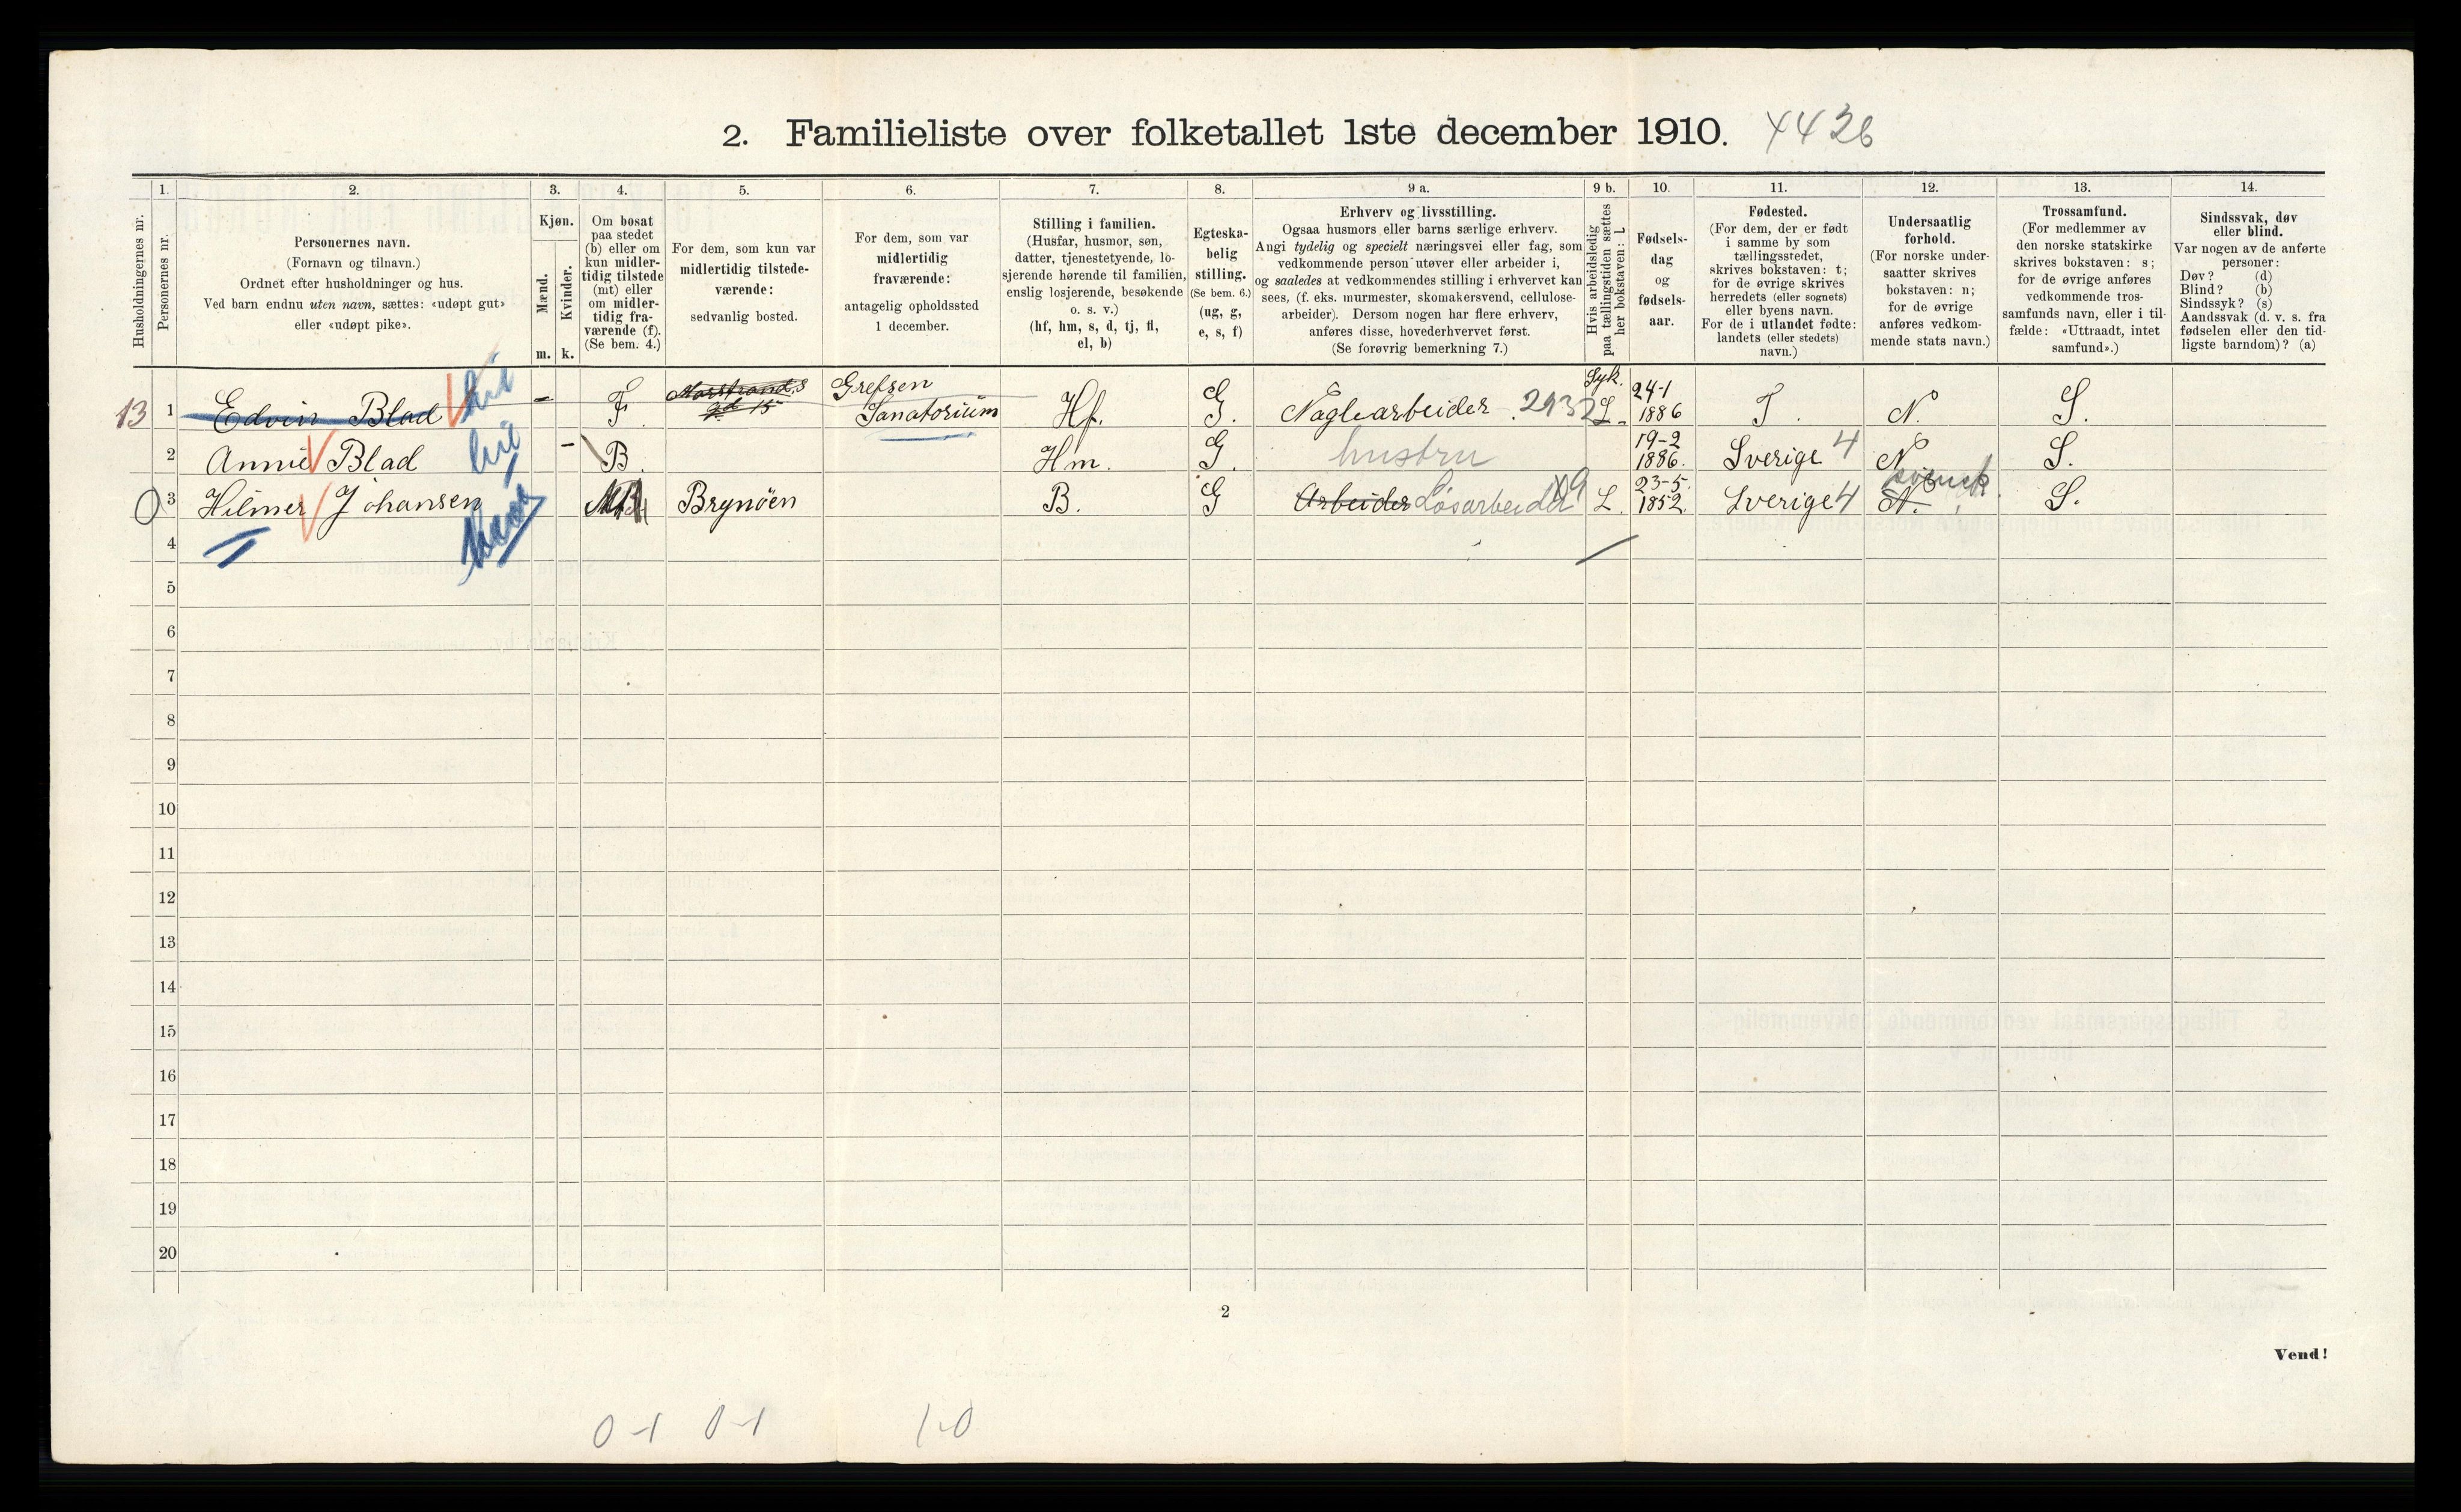 2. Familieliste over folketallet 1ste december 1910. 4436
1.
2.
3.
4.
5.
6.
7.
8.
9 a.
9 b.
10.
11.
12.
13.
14.
Husholdningernes nr.
Personernes nr.
Personernes navn.
(Fornavn og tilnavn.)
Ordnet efter husholdninger og hus.
Ved barn endnu uten navn, sættes: «udøpt gut»
eller «udøpt pike».
Kjøn.
Mænd.
Kvinder.
m. k.
Om bosat
paa stedet
(b) eller om
kun midler-
tidig tilstede
(mt) eller
om midler-
tidig fra-
værende (f).
(Se bem. 4.)
For dem, som kun var
midlertidig tilstede-
værende:
sedvanlig bosted.
For dem, som var
midlertidig
fraværende:
antagelig opholdssted
1 december.
Stilling i familien.
(Husfar, husmor, søn,
datter, tjenestetyende, lo-
sjerende hørende til familien,
enslig losjerende, besøkende
o. s. v.)
(hf, hm, s, d, tj, fl,
el, b)
Egteska-
belig
stilling.
(Se bem. 6.)
(ug, g,
e, s, f)
Erhverv og livsstilling.
Ogsaa husmors eller barns særlige erhverv.
Angi tydelig og specielt næringsvei eller fag, som
vedkommende person utøver eller arbeider i,
og saaledes at vedkommendes stilling i erhvervet kan
sees, (f. eks. murmester, skomakersvend, cellulose-
arbeider). Dersom nogen har flere erhverv,
anføres disse, hovederhvervet først.
(Se forøvrig bemerkning 7.)
Hvis arbeidsledig
paa tællingstiden sættes
her bokstaven: L
Fødsels-
dag
og
fødsels-
aar.
Fødested.
(For dem, der er født
i samme by som
tællingsstedet,
skrives bokstaven: t;
for de øvrige skrives
herredets (eller sognets)
eller byens navn.
For de i utlandet fødte:
landets (eller stedets)
navn.)
Undersaatlig
forhold.
(For norske under-
saatter skrives
bokstaven: n;
for de øvrige
anføres vedkom-
mende stats navn.)
Trossamfund.
(For medlemmer av
den norske statskirke
skrives bokstaven: s;
for de øvrige anføres
vedkommende tros-
samfunds navn, eller i til-
fælde: «Uttraadt, intet
samfund».)
Sindssvak, døv
eller blind.
Var nogen av de anførte
personer:
Døv? (d)
Blind? (b)
Sindssyk? (s)
Aandssvak (d. v. s. fra
fødselen eller den tid-
ligste barndom)? (a)
13 1 Edvin Blad - F. Grefsen Sanatorium Hf. G. Naglearbeider 2932 Syk. L. 24-1 1886 T. N. S.
2 Annie Blad - B. Hm. G. hustru 19-2 1886. Sverige 4 N S.
3 Hilmer Johansen Brynöen B. G Arbeider Løsarbeider L. 23-5. 1852. Sverige 4 N. svensk S.
4
5
6
7
8
9
10
11
12
13
14
15
16
17
18
19
20
2
Vend!
0-1 0-1 1-0